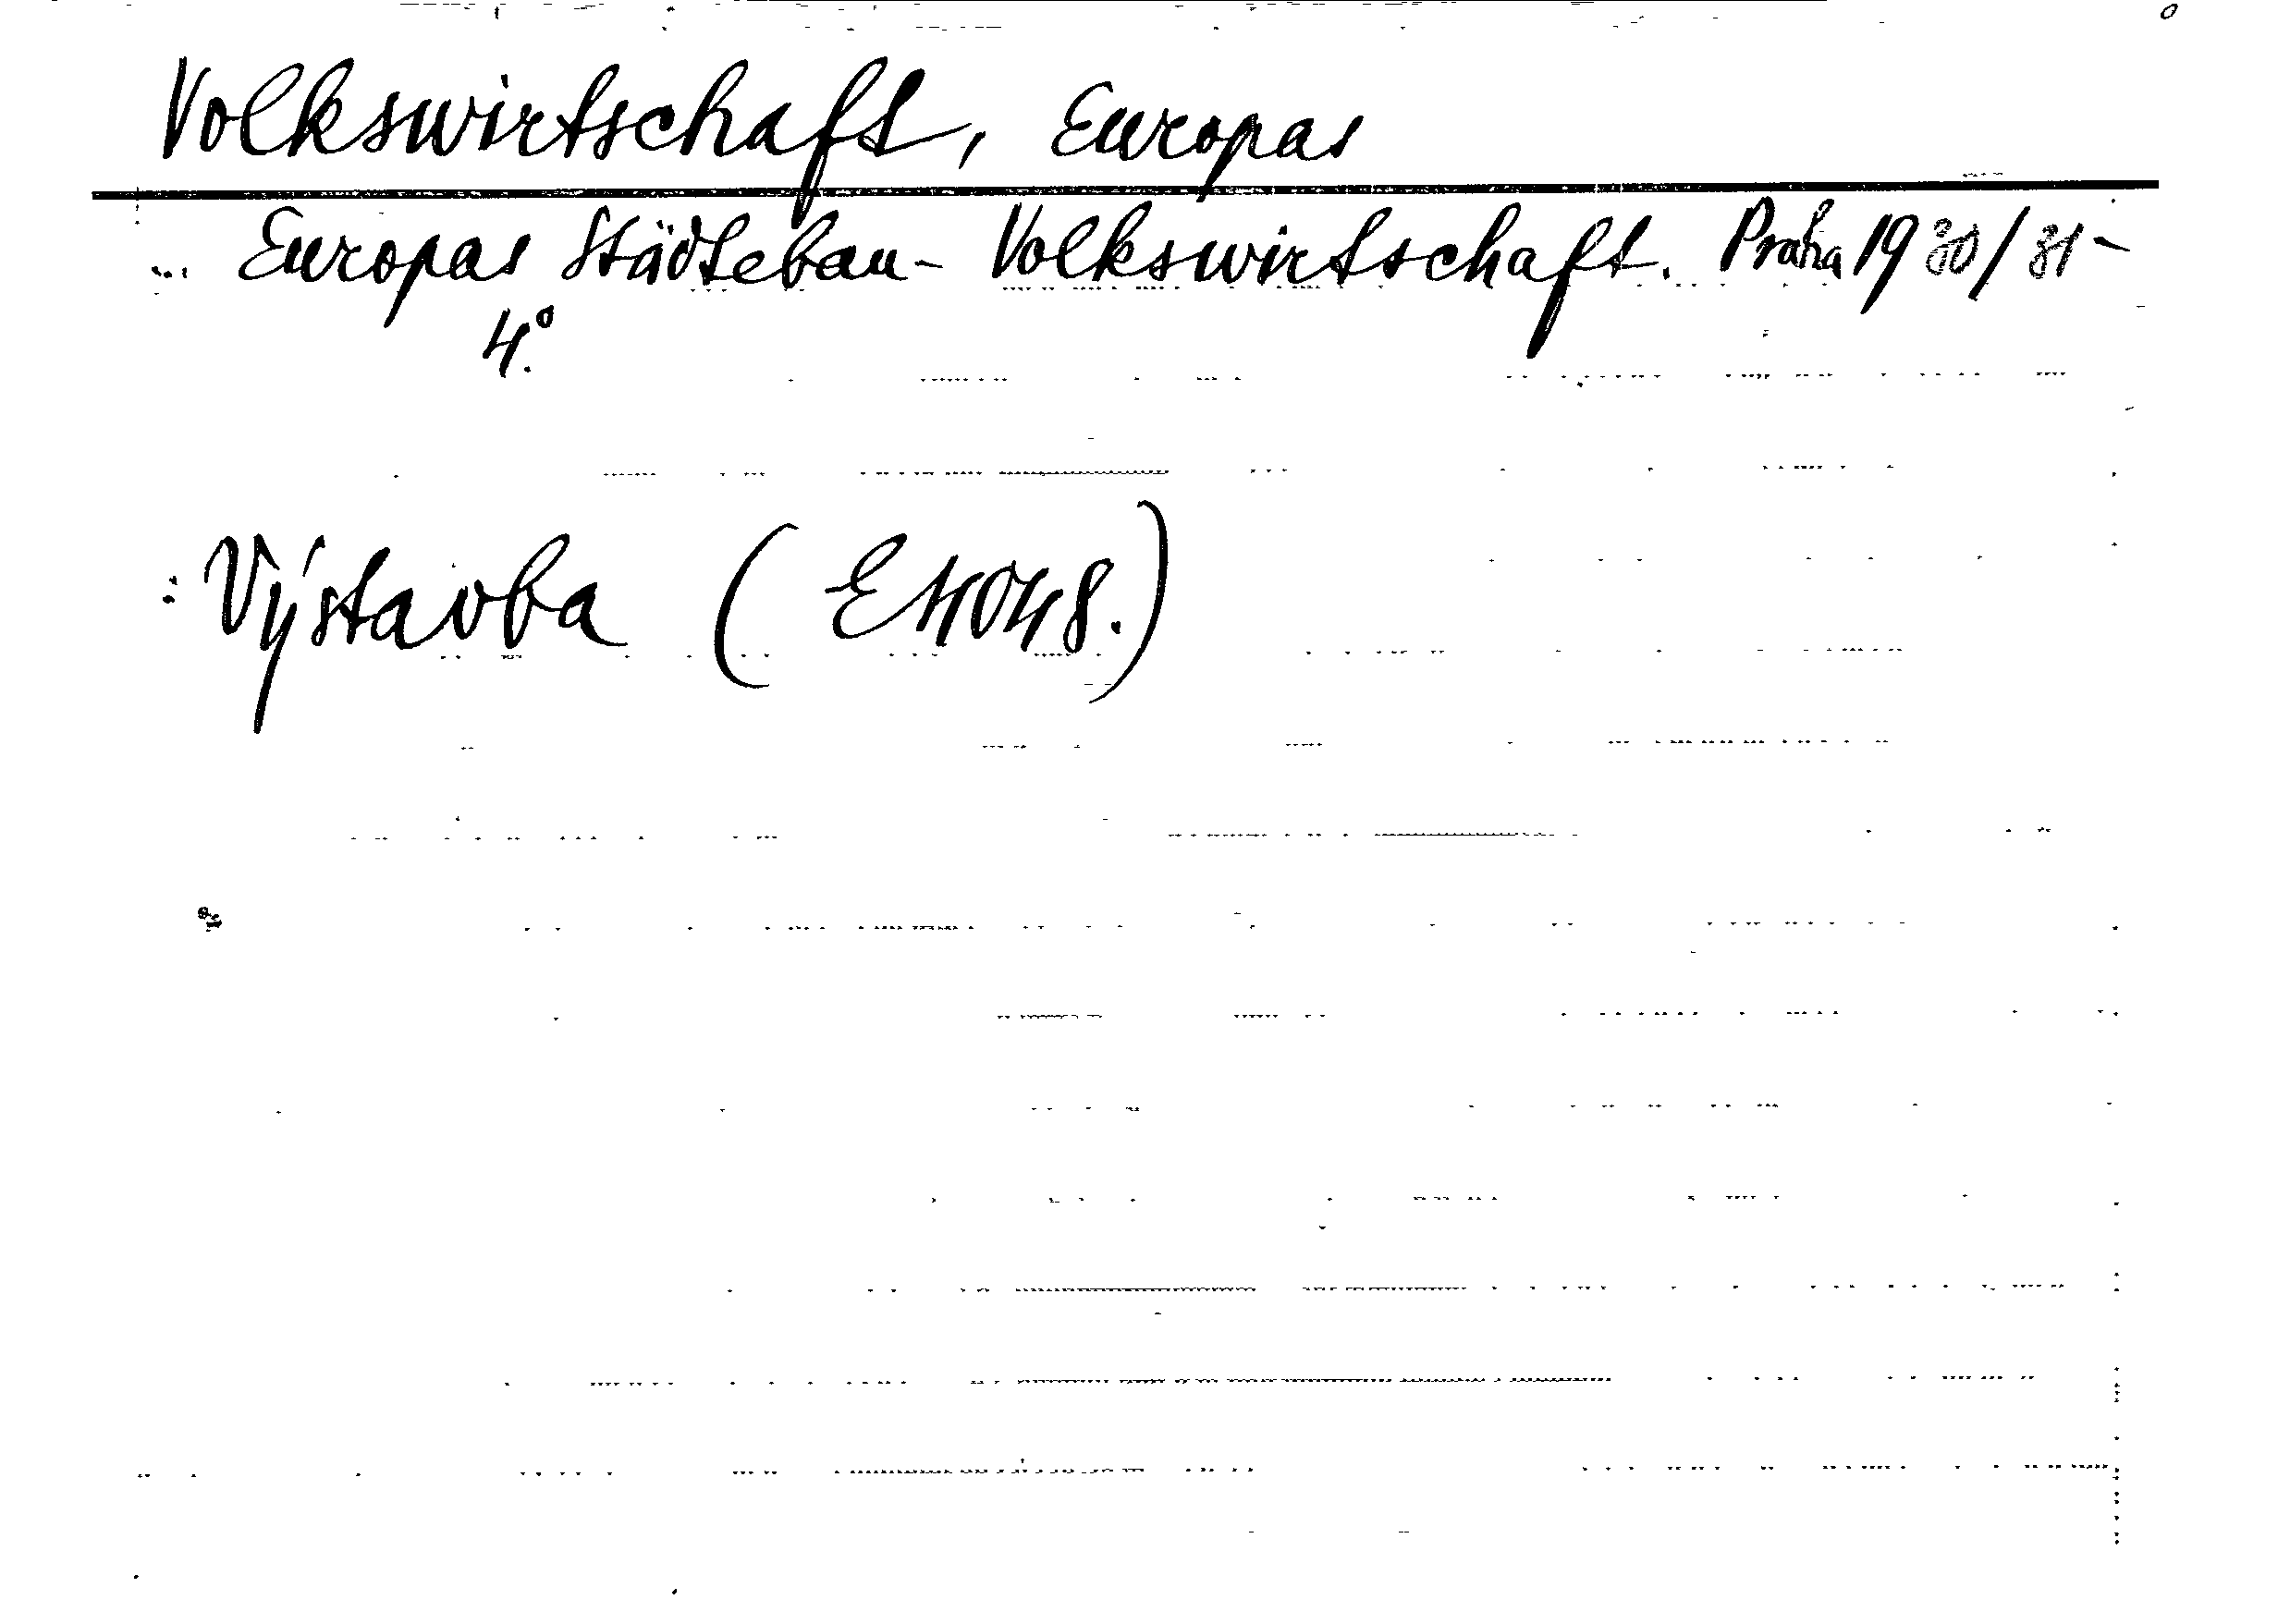 Volkswirtschaft, Europas
... Europas Städtebau- Volkswirtschaft. Praha 1930/31-
4.°
: Výstavba ( E 4048.)